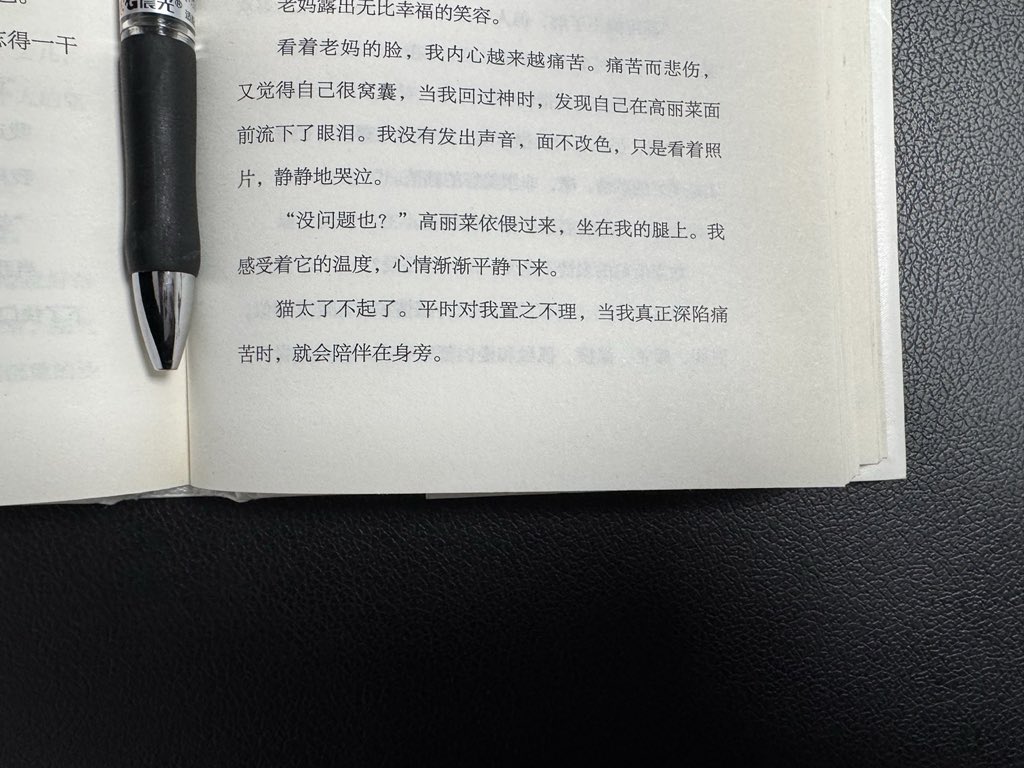 忘得一干
晨光
老妈露出无比幸福的笑容。
看着老妈的脸，我内心越来越痛苦。痛苦而悲伤，
又觉得自己很窝囊，当我回过神时，发现自己在高丽菜面
前流下了眼泪。我没有发出声音，面不改色，只是看着照
片，静静地哭泣。
“没问题也？”高丽菜依偎过来，坐在我的腿上。我
感受着它的温度，心情渐渐平静下来。
猫太了不起了。平时对我置之不理，当我真正深陷痛
苦时，就会陪伴在身旁。